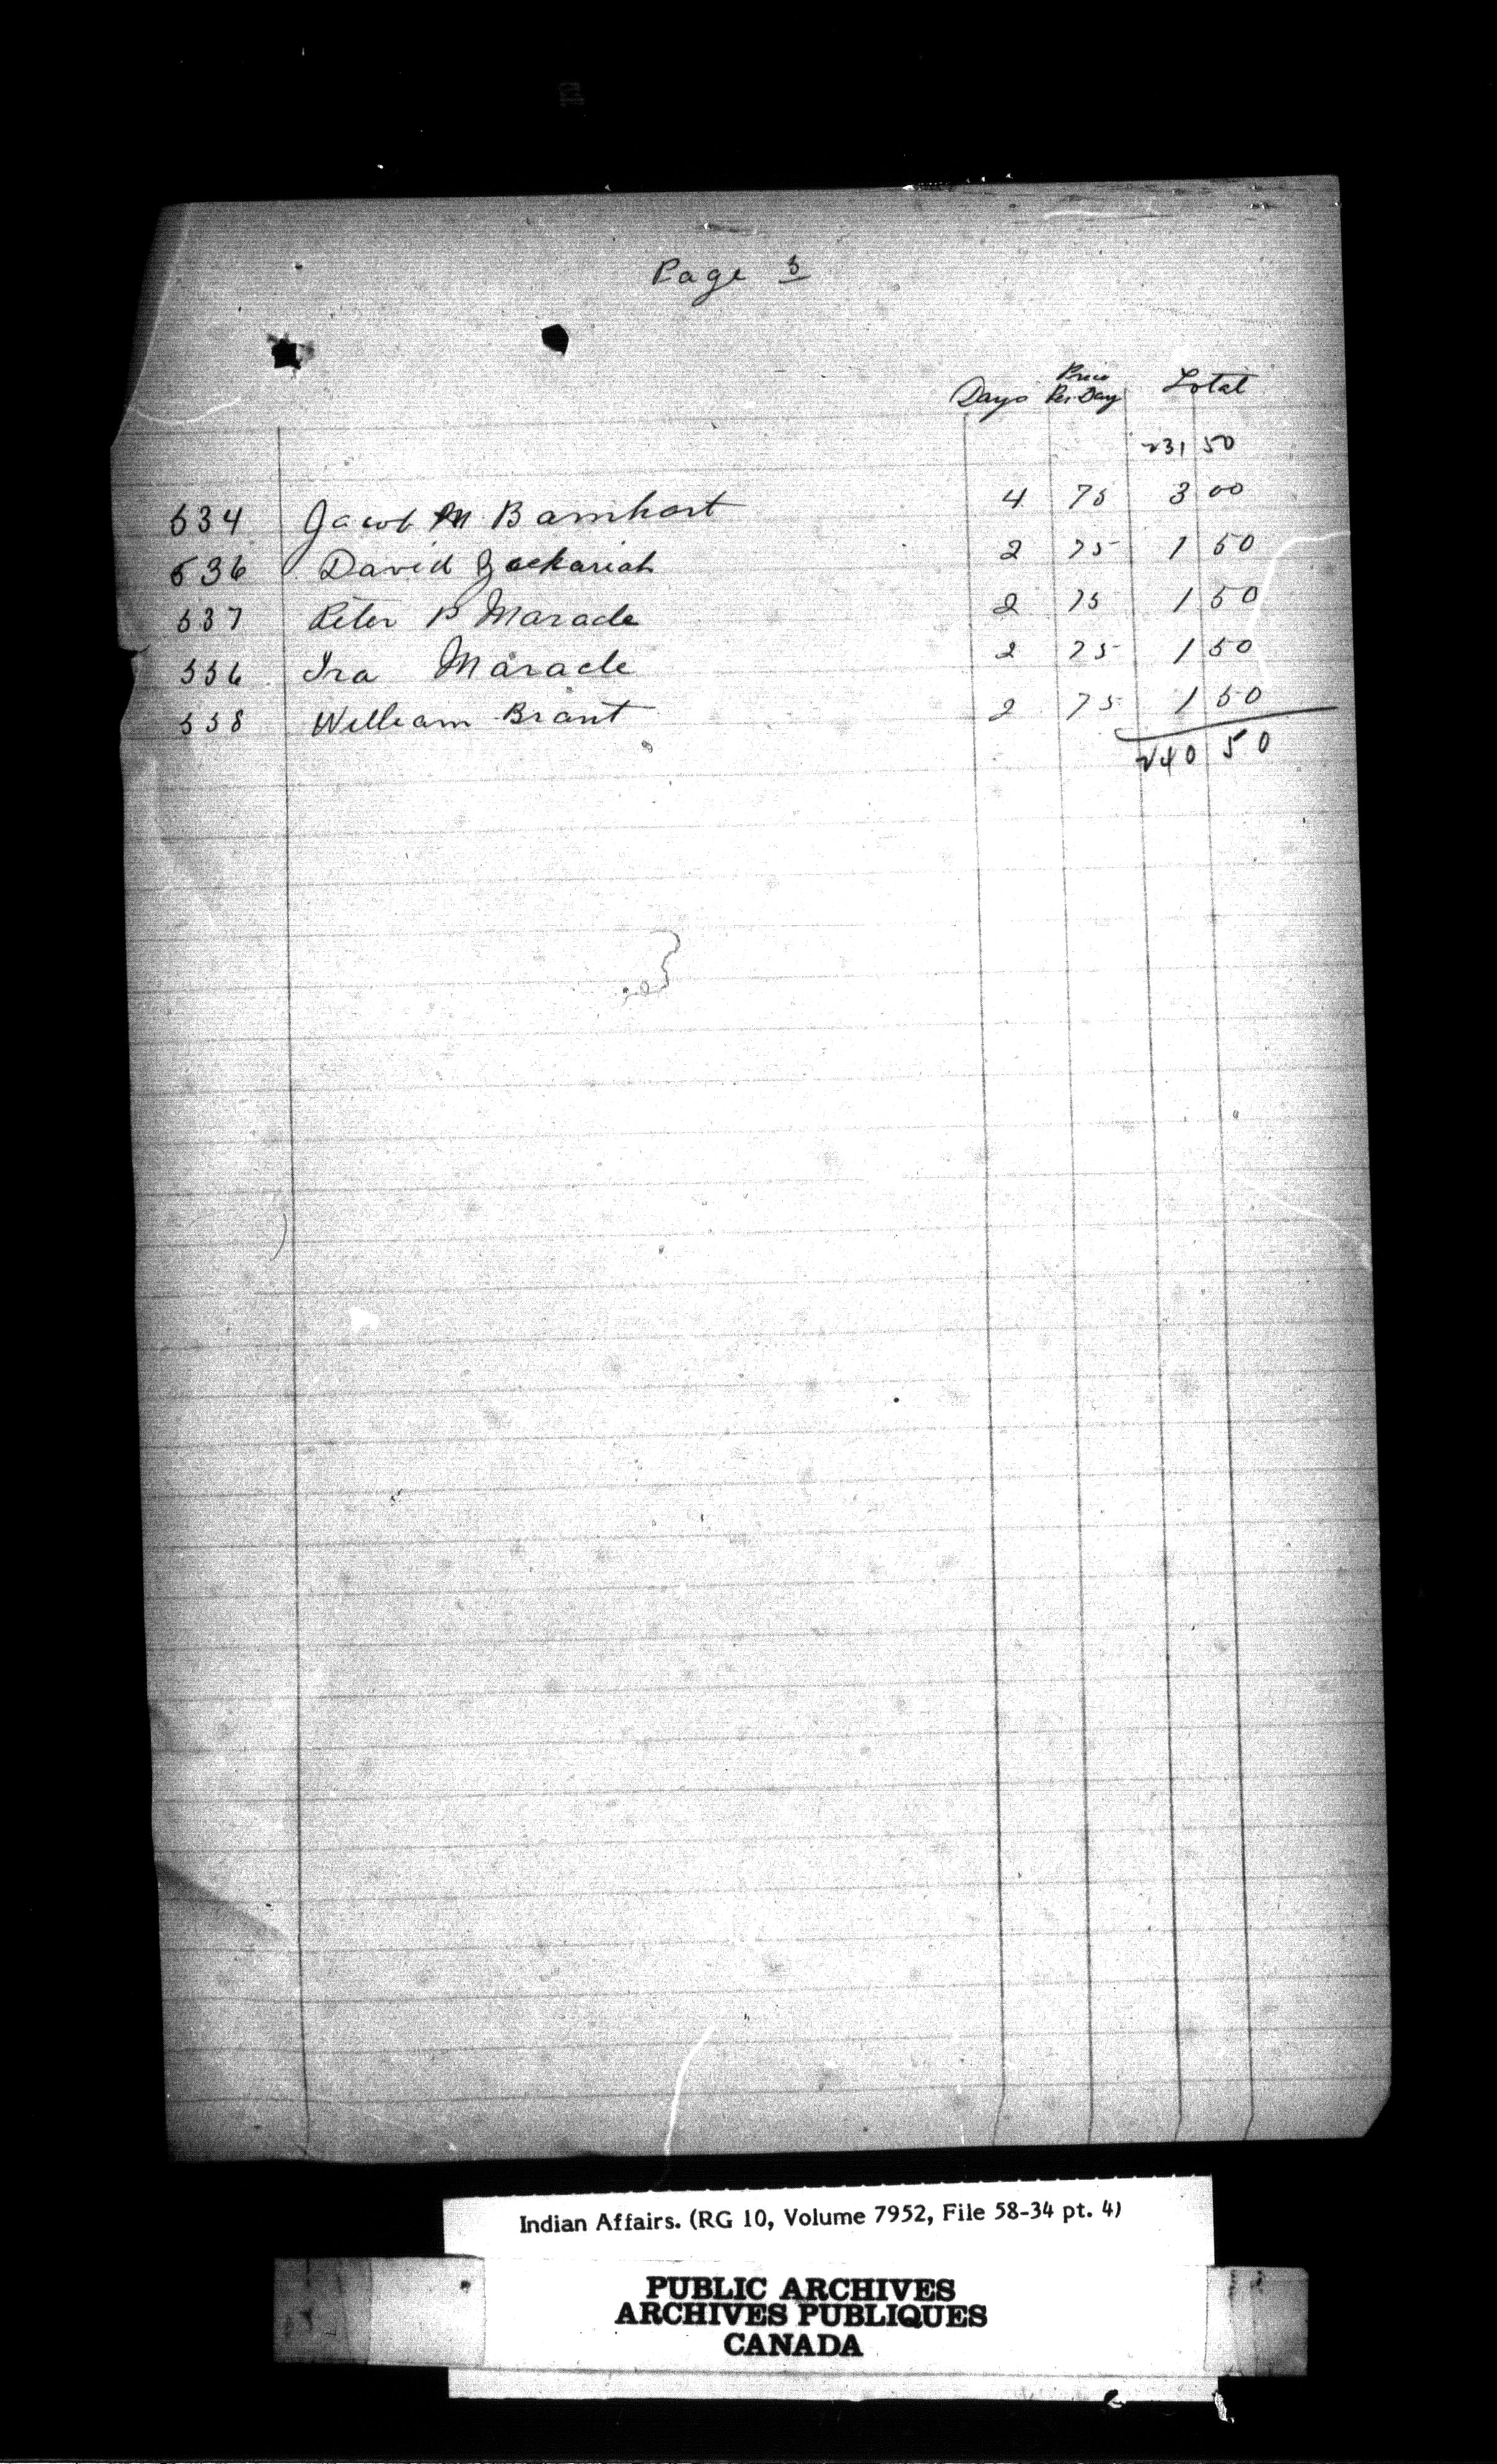 Page 3
Days Price Per Day Total
231 50
534 Jacob M Barnhart 4 75 3 00
536 David Zachariah 2 75 1 50
537 Peter P Maracle 2 75 1 50
556 Ira Maracle 2 75 1 50
558 William Brant 2 75 1 50
240 50
Indian Affairs. (RG 10, Volume 7952, File 58-34 pt. 4)
PUBLIC ARCHIVES
ARCHIVES PUBLIQUES
CANADA